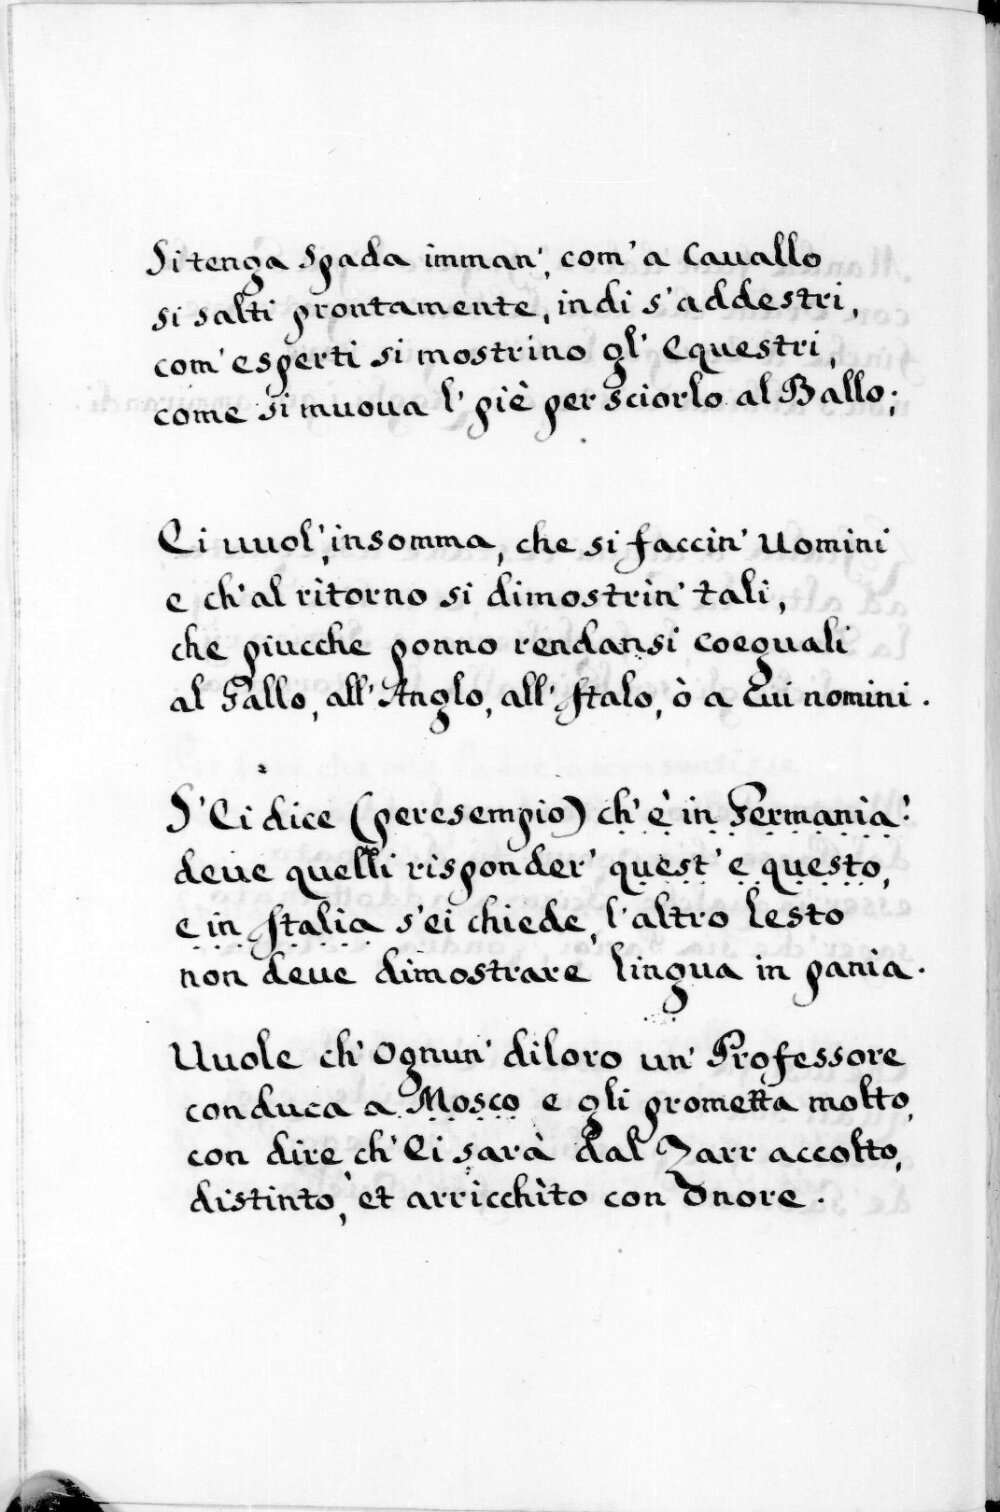 Si tenga Spada imman', com' a Cauallo
si salti prontamente, indi s'addestri,
com' esperti si mostrino gl' Equestri,
come si muoua l' piè per Sciorlo al Ballo;
Ci uuol', insomma, che si faccin' Uomini
e ch' al ritorno si dimostrin' tali,
che piucche ponno rendansi coequali
al Gallo, all' Anglo, all' Italo, ò a Cui nomini.
S' Ci dice (peresempio) ch' è in Germania:
deue quelli risponder' quest' e questo,
e in Italia s'ei chiede, l'altro lesto
non deue dimostrare lingua in pania.
Uuole ch' Ognun' diloro un' Professore
conduca a Mosco e gli prometta molto,
con dire ch' Ci sarà dal Zarr accolto,
distinto, et arricchito con Onore.